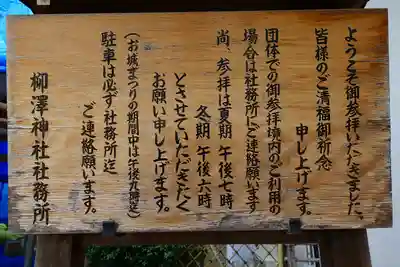 ようこそ御参拝いただきました。
皆様のご清福御祈念
申し上げます。
団体での御参拝境内のご利用の
場合は社務所にご連絡願います
尚、参拝は夏期 午後七時
冬期 午後六時
とさせていただきたく
お願い申し上げます。
(お城まつりの期間中は午後九時迄)
駐車は必ず社務所迄
ご連絡願います。
柳澤神社社務所